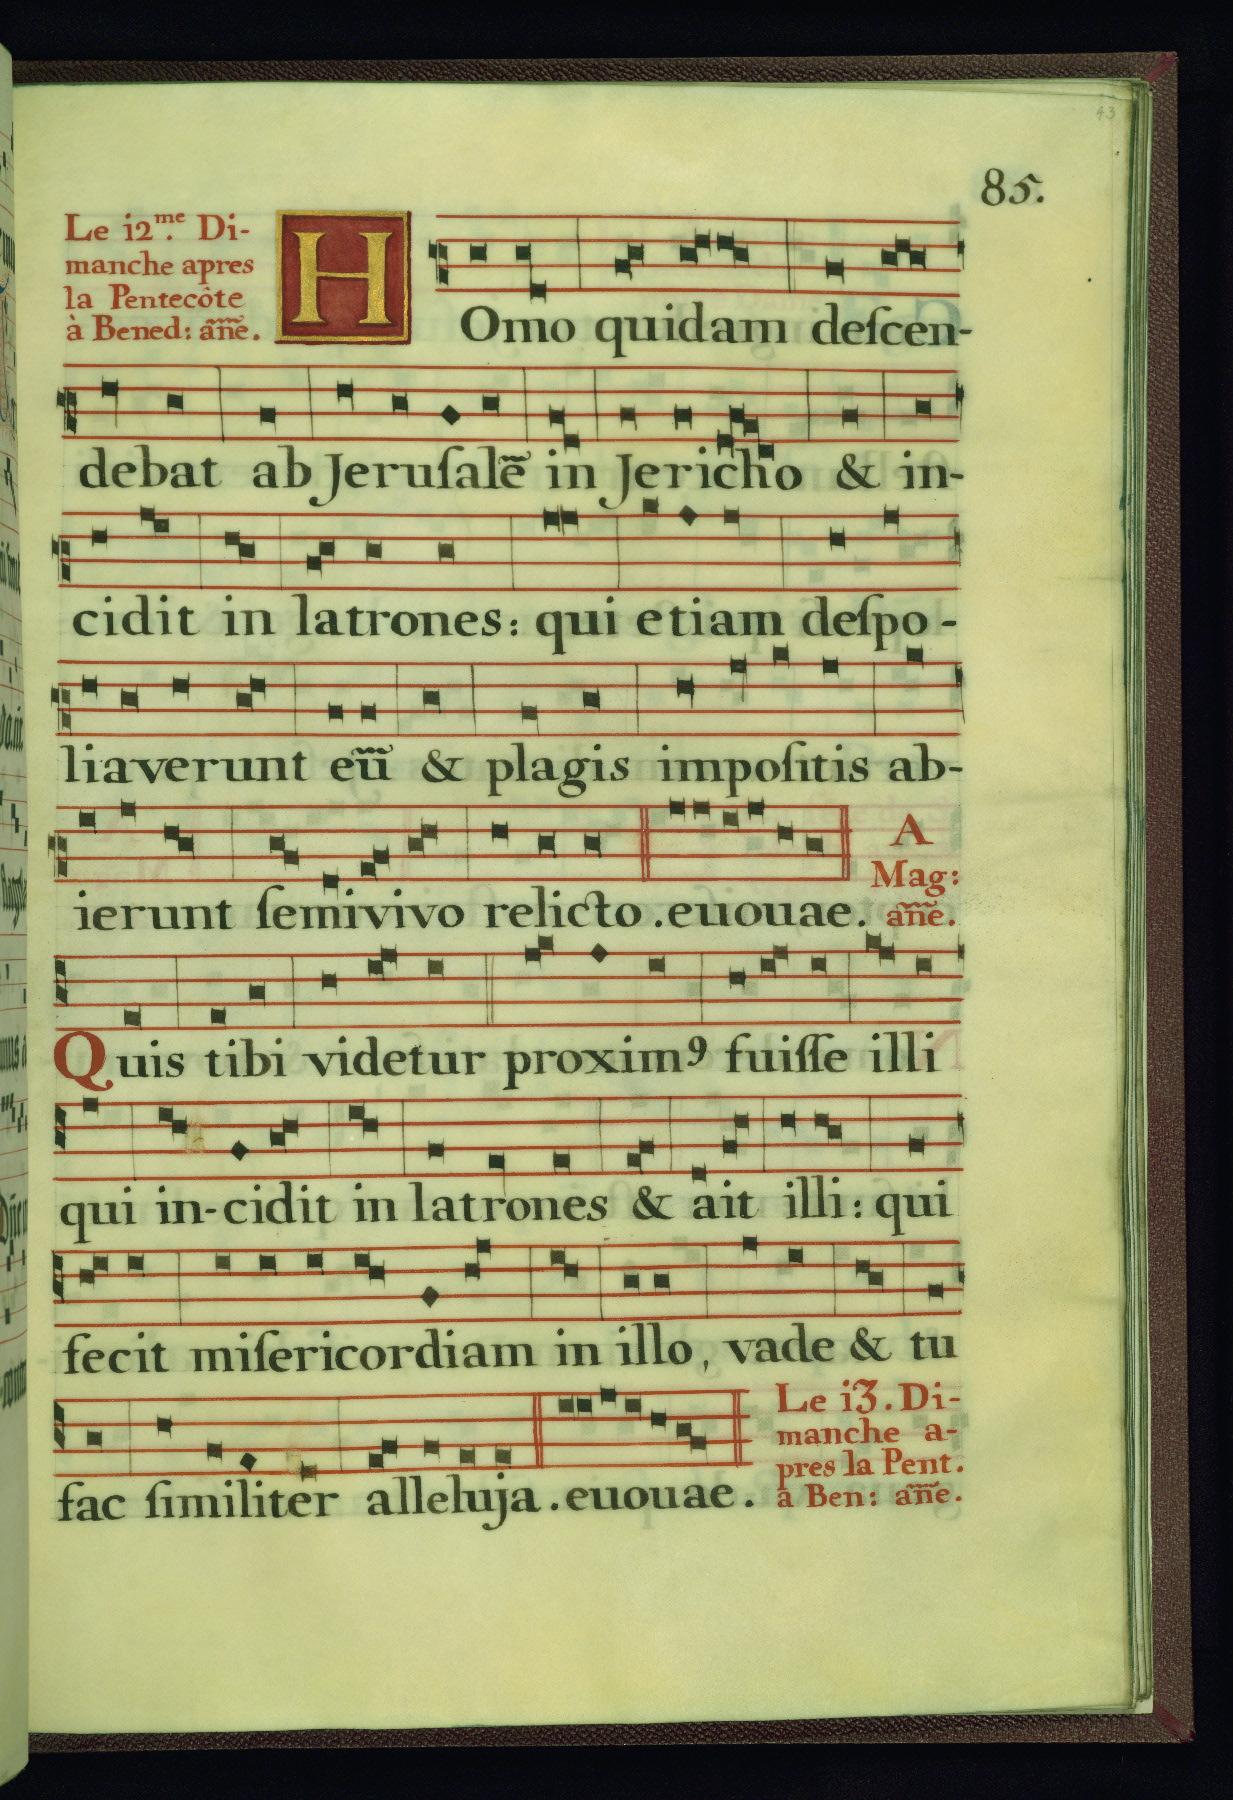 43
85.
Le i2.me Di-
manche apres
la Pentecôte
à Bened: añe.
HOmo quidam deſcen-
debat ab Jeruſalē in Jericho & in-
cidit in latrones: qui etiam deſpo-
liaverunt eū & plagis impoſitis ab-
ierunt ſemivivo relicto. euouae.
A
Mag:
añe.
Quis tibi videtur proximꝰ fuiſſe illi
qui in-cidit in latrones & ait illi: qui
fecit miſericordiam in illo, vade & tu
fac ſimiliter alleluja. euouae.
Le i3. Di-
manche a-
pres la Pent.
a Ben: añe.